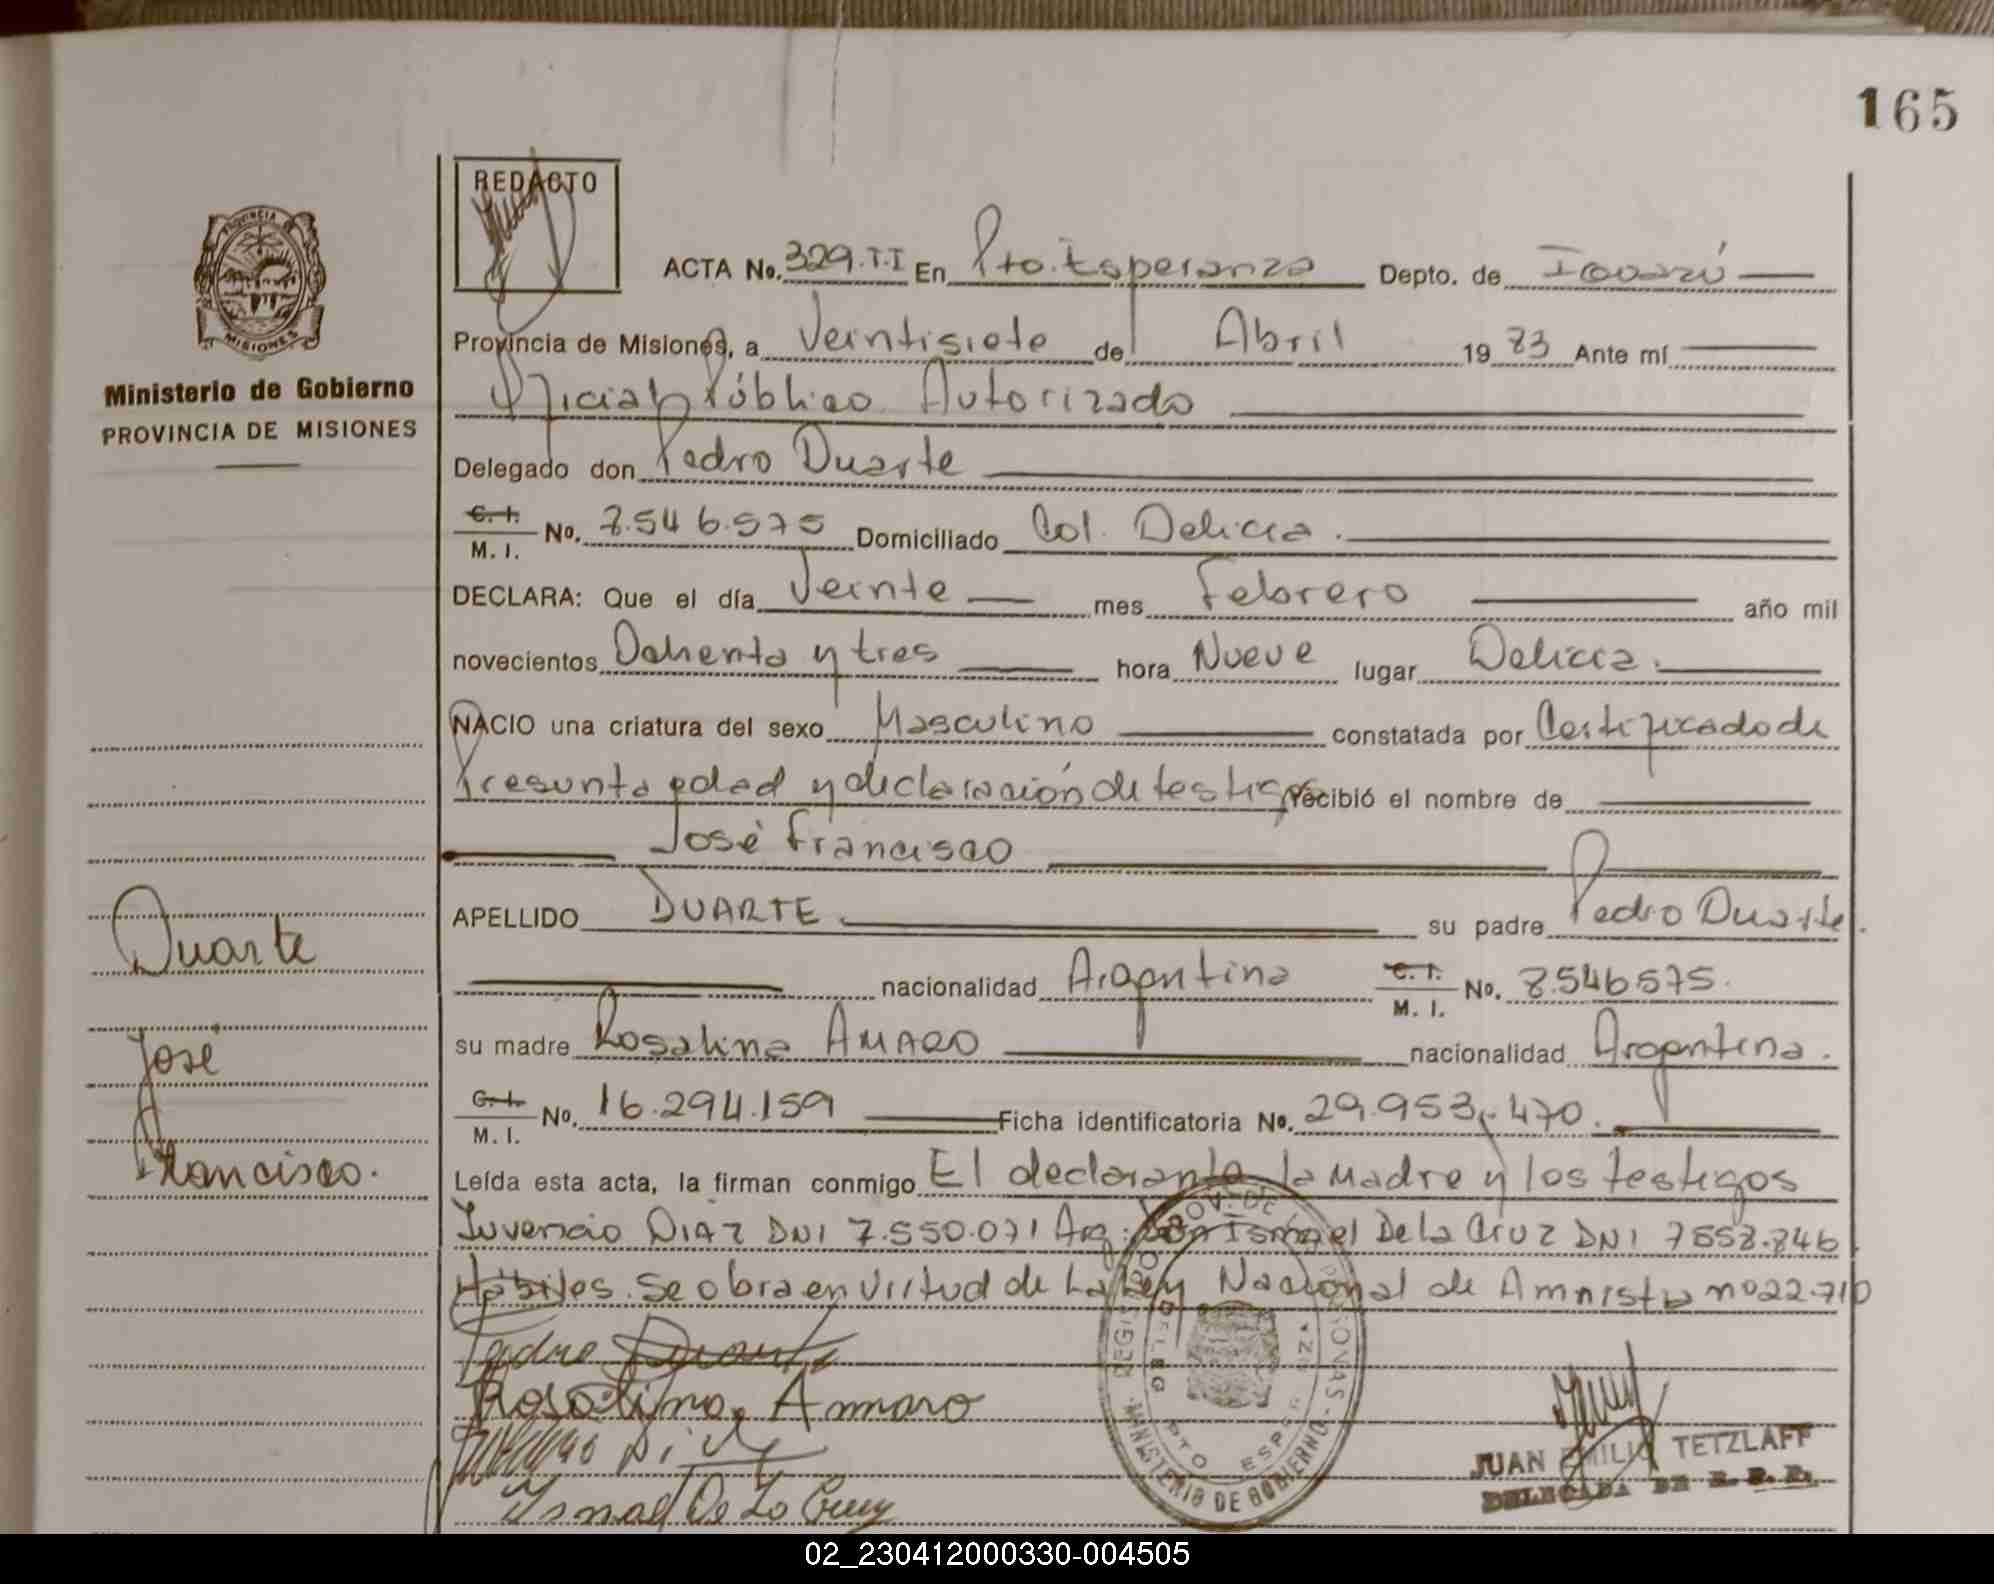 165
REDACTO
ACTA No. 329.T.I En Pto. Esperanza Depto. de Iguazú
PROVINCIA
MISIONES
Provincia de Misiones, a Veintisiete de Abril 19 83 Ante mí
Ministerio de Gobierno
PROVINCIA DE MISIONES
Oficial Público Autorizado
Delegado don Pedro Duarte
C. I.
M. I. No. 8.546.575 Domiciliado Col. Delicia.
DECLARA: Que el día Veinte mes Febrero año mil
novecientos Ochenta y tres hora Nueve lugar Delicia.
NACIO una criatura del sexo Masculino constatada por Certificado de
Presunta edad y declaración de testigos recibió el nombre de
José Francisco
APELLIDO DUARTE su padre Pedro Duarte.
nacionalidad Argentina C. I.
M. I. No. 8546575.
su madre Rosalina AMARO nacionalidad Argentina.
C. I.
M. I. No. 16.294.159 Ficha identificatoria No. 29.953.470.
Duarte
José
Francisco.
Leída esta acta, la firman conmigo El declarante la Madre y los testigos
Juvencio DIAZ DNI 7.550.071 Arg. Ismael De la Cruz DNI 7558.846
Hábiles. Se obra en virtud de La Ley Nacional de Amnistia nº 22.710
Pedro Duarte
Rosalina Ammaro
Ismael De La Cruz
PROV. DE
MINISTERIO DE GOBIERNO
PTO ESPER
JUAN EMILIO TETZLAFF
02_230412000330-004505